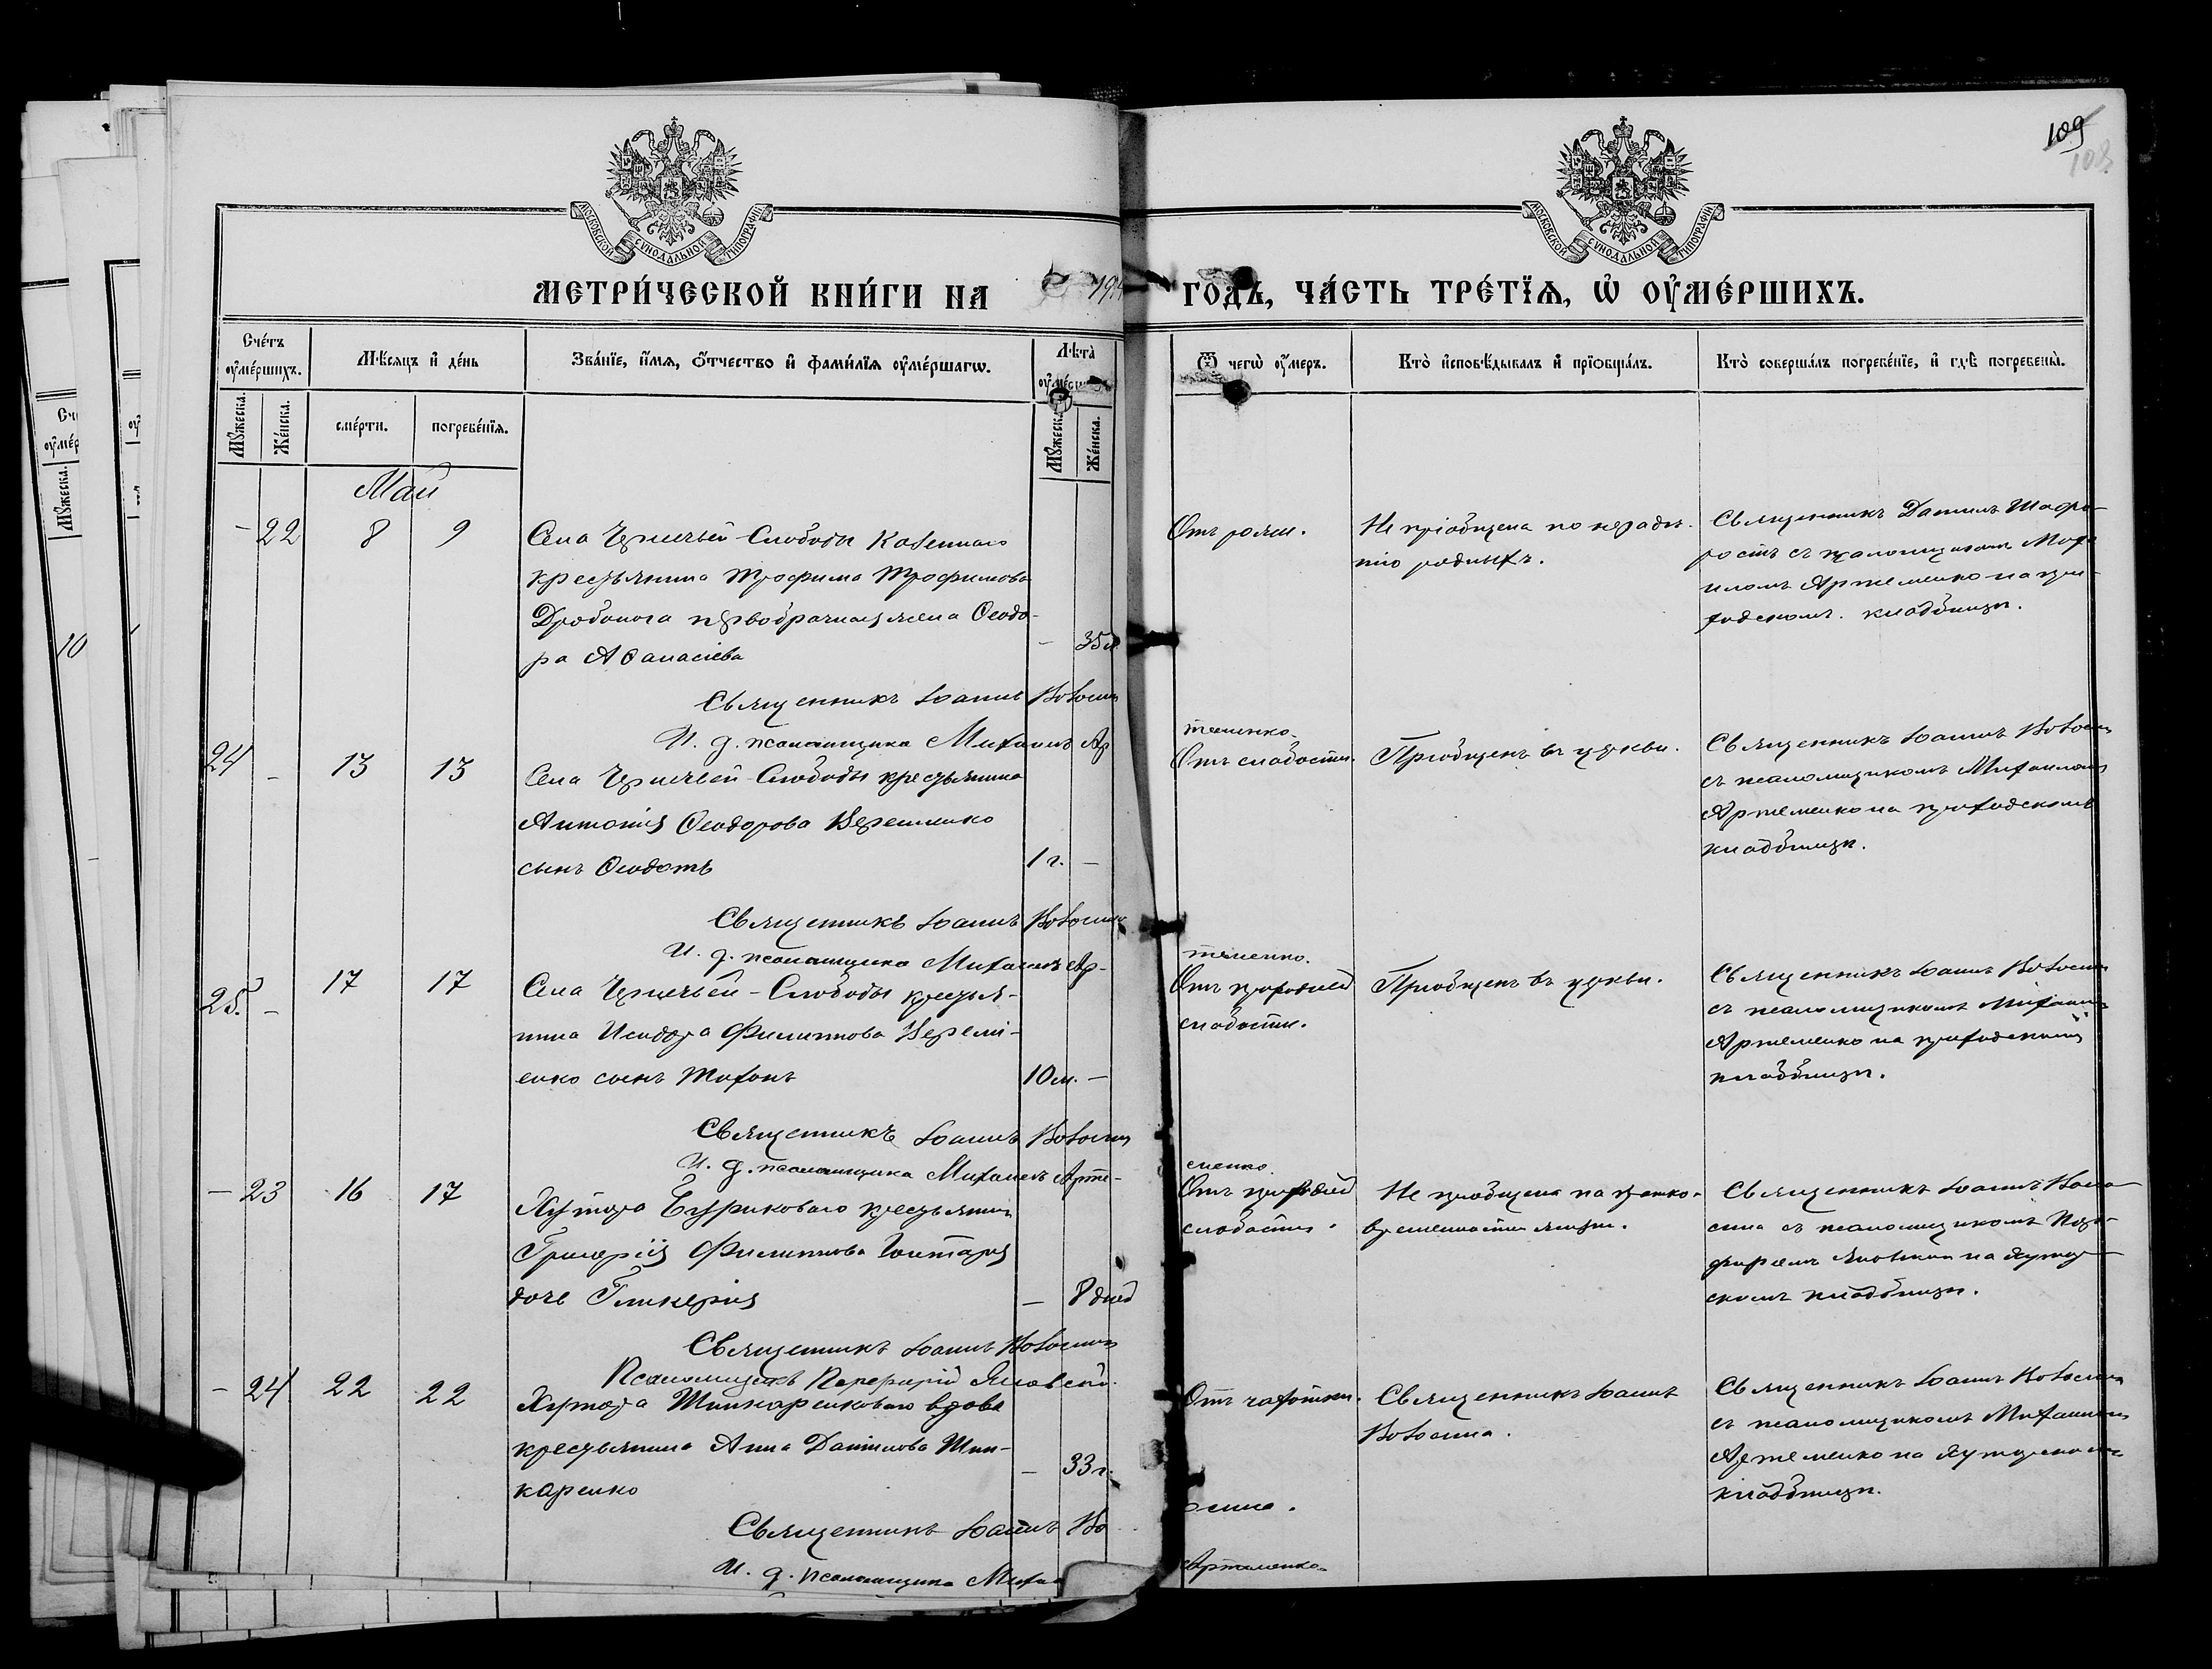 109
108
МОСКОВСКОЙ СѴНОДАЛЬНОЙ ТИПОГРАФІИ
МОСКОВСКОЙ СѴНОДАЛЬНОЙ ТИПОГРАФІИ
МЕТРИ́ЧЕСКОЙ КНИ́ГИ НА 191
ГО́ДЪ, ЧА́СТЬ ТРЕ́ТЇѦ, Ѡ҆ ОУ҆МЕ́РШИХЪ.
Сче́тъ оу҆ме́ршихъ.
Мѣ́сяцъ и҆ де́нь
Зва́нїе, и҆́мѧ, ѻ҆́тчество и҆ фами́лїѧ оу҆ме́ршагѡ.
Лѣ́та
Ѿ чегѡ̀ оу҆́меръ.
Кто̀ и҆сповѣ́дывалъ и҆ прїѡбща́лъ.
Кто̀ соверша́лъ погребе́нїе, и҆ гдѣ̀ погребены̀.
Мꙋ́жеска.
Же́нска.
сме́рти.
погребе́нїѧ.
Мꙋ́жеска.
Же́нска.
Май
- 22 8 9
Села Чернечьей-Слободы Козеннаго
крестьянина Трофима Трофимова
первобрачная жена Ѳеодо-
ра Аѳанасіева
- 35
Отъ
Не пріобщена по нераде-
нію родныхъ.
Священникъ Даніилъ Шафо-
ростъ съ псаломщикомъ Миха-
иломъ Артеменко на при-
ходскомъ кладбищѣ.
Священникъ Іоаннъ Волосин
И. д. псаломщика Михаилъ Ар
теменко.
24 - 13 13
Села Чернечьей-Слободы крестьянина
Антонія Ѳеодорова Веременко
сынъ Ѳеодотъ
1 г. -
Отъ слабости.
Пріобщенъ въ церкви.
Священникъ Іоаннъ Волосин
съ псаломщикомъ Михаиломъ
Артеменко на приходскомъ
кладбищѣ.
Священникъ Іоаннъ Волосин
И. д. псаломщика Михаилъ Ар-
теменко.
25. - 17 17
Села Чернечьей-Слободы крестья-
нина Исидора Филиппова Веремі-
енко сынъ Тихонъ
10 м. -
Отъ природной
слабости.
Пріобщенъ въ церкви.
Священникъ Іоаннъ Волосин
съ псаломщикомъ Михаиломъ
Артеменко на приходскомъ
кладбищѣ.
Священникъ Іоаннъ Волосин
И. д. псаломщика Михаилъ Арте-
менко.
- 23 16 17
Хутора крестьянина
Григорія Филиппова
дочь Гликерія
- 8 дней
Отъ природной
слабости.
Не пріобщена по кратко-
временности жизни.
Священникъ Іоаннъ Воло-
сина съ псаломщикомъ Пор-
фиріемъ на хутор-
скомъ кладбищѣ.
Священникъ Іоаннъ Волосин
Псаломщикъ Порфирій
- 24 22 22
Хутора Шинкаренковаго вдова
крестьянина Анна Даніилова Шин-
каренко
- 33 г.
Отъ чахотки.
Священникъ Іоаннъ
Волосина.
Священникъ Іоаннъ Волосина
съ псаломщикомъ Михаиломъ
Артеменко на хуторскомъ
кладбищѣ.
Священникъ Іоаннъ Во
осина.
И. д. псаломщика Михаи
Артеменко.
10